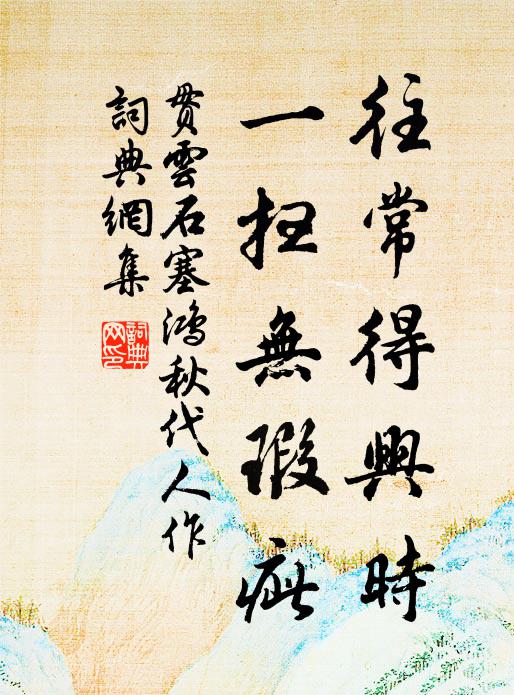 往常得興時
一扫無瑕疵
貫雲石塞鴻秋代人作
詞典網集
詞典網印